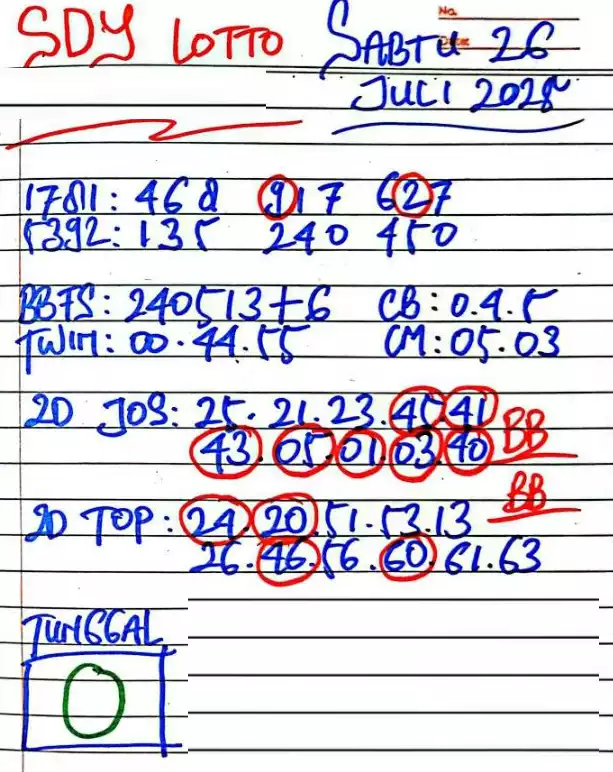 No.
Date
SDY LOTTO SABTU 26
JULI 2025
1781: 468 917 627
5392: 135 240 450
BBFS: 240513+6 CB: 0.4.5
TWIN: 00.44.55 CM: 05.03
2D JOS: 25.21.23.45.41
43.05.01.03.40 BB
2D TOP: 24.20.51.53.13 BB
26.46.56.60.61.63
TUNGGAL
0